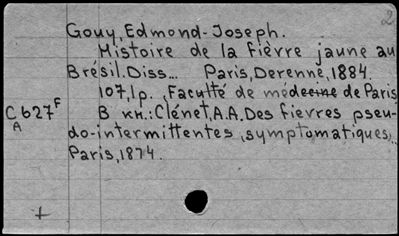 2
Gouy, Edmond-Joseph.
Histoire de la fièvre jaune au
Brésil. Diss... Paris, Derenne, 1884.
107,1p. Faculté de médecine de Paris
C627F В кн.: Clénet, A.A. Des fievres pseu-
A do-intermittentes, symptomatiques,..
Paris, 1874.
+